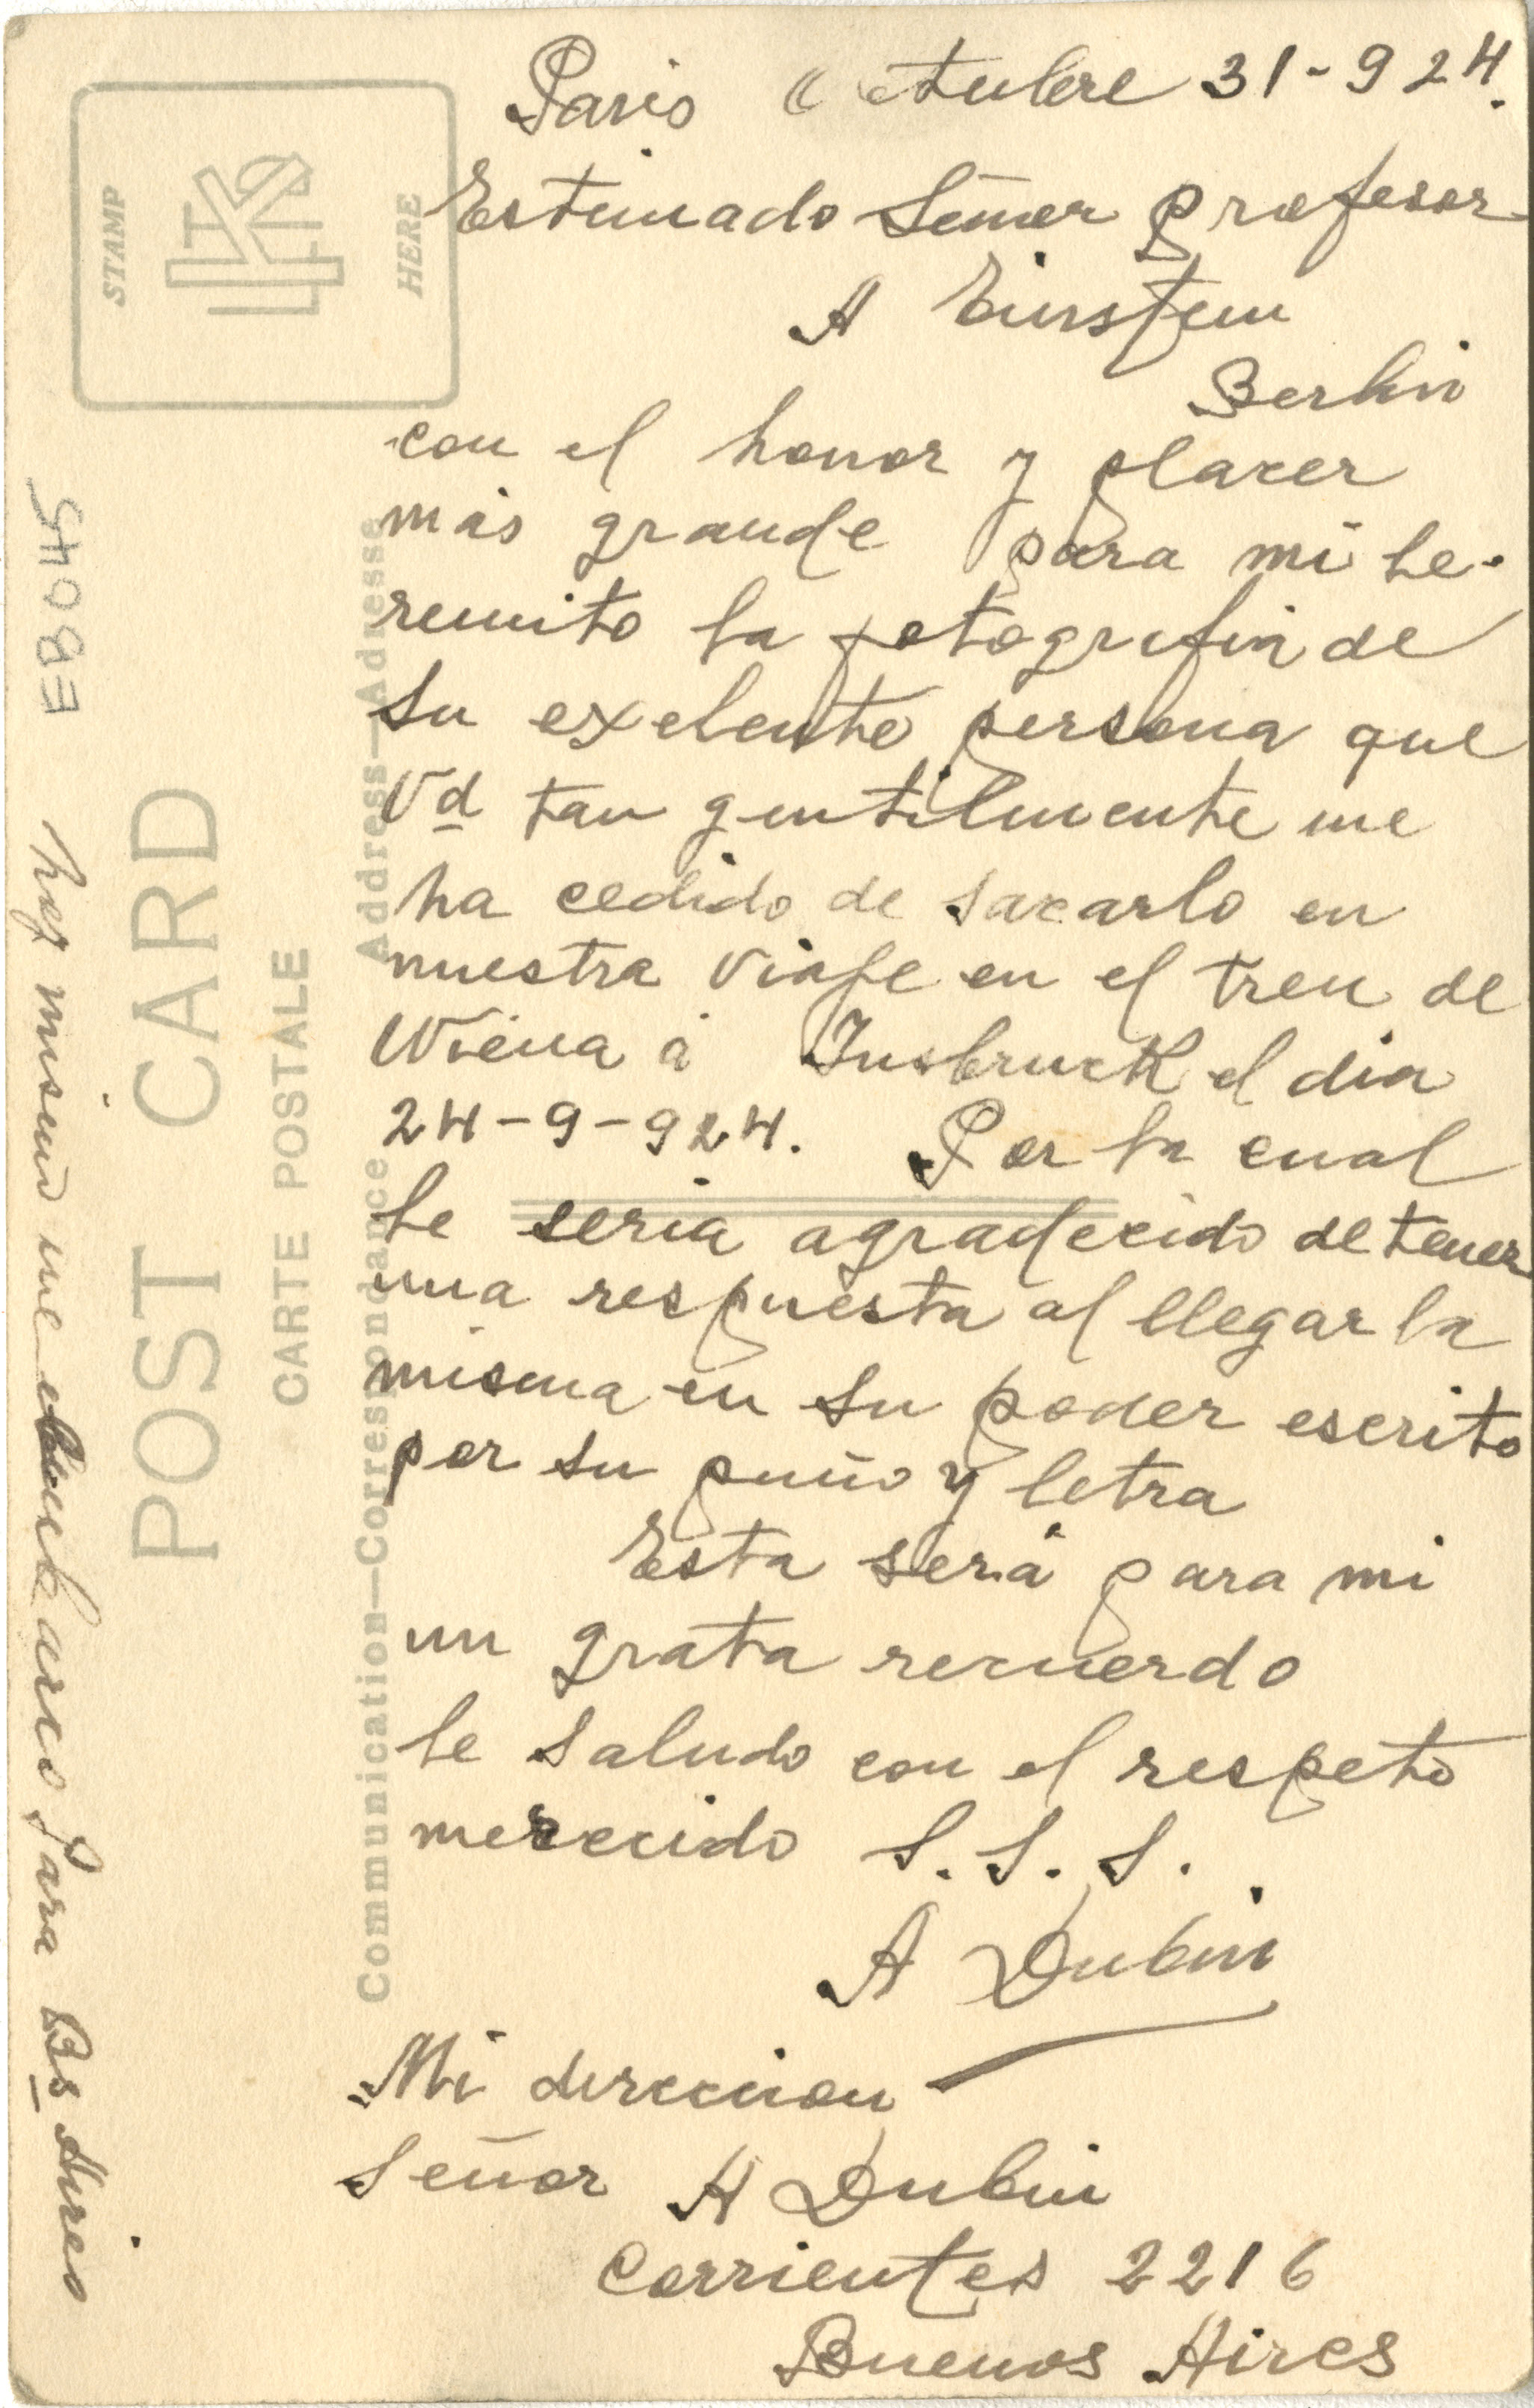 Paris Octubre 31-924.
Estimado Señor profesor
A Einstein
Berlin
con el honor y placer
más grande para mi le
remito la fotografia de
su exelente persona que
Vd tan gentilmente me
ha cedido de sacarlo en
nuestra viaje en el tren de
Wiena á Insbruck el dia
24-9-924. Por la cual
le seria agradecido de tener
una respuesta al llegar la
misma en su poder escrito
por su puño y letra
Esta será para mi
un grata recuerdo
le saludo con el respeto
merecido S.S.S.
A Dubin
Mi direccion
Señor A Dubin
Corrientes 2216
Buenos Aires
hoy mismo me embarco para Bs Aires
EB045
STAMP
HERE
POST CARD
CARTE POSTALE
Communication—Correspondance
Address—Adresse